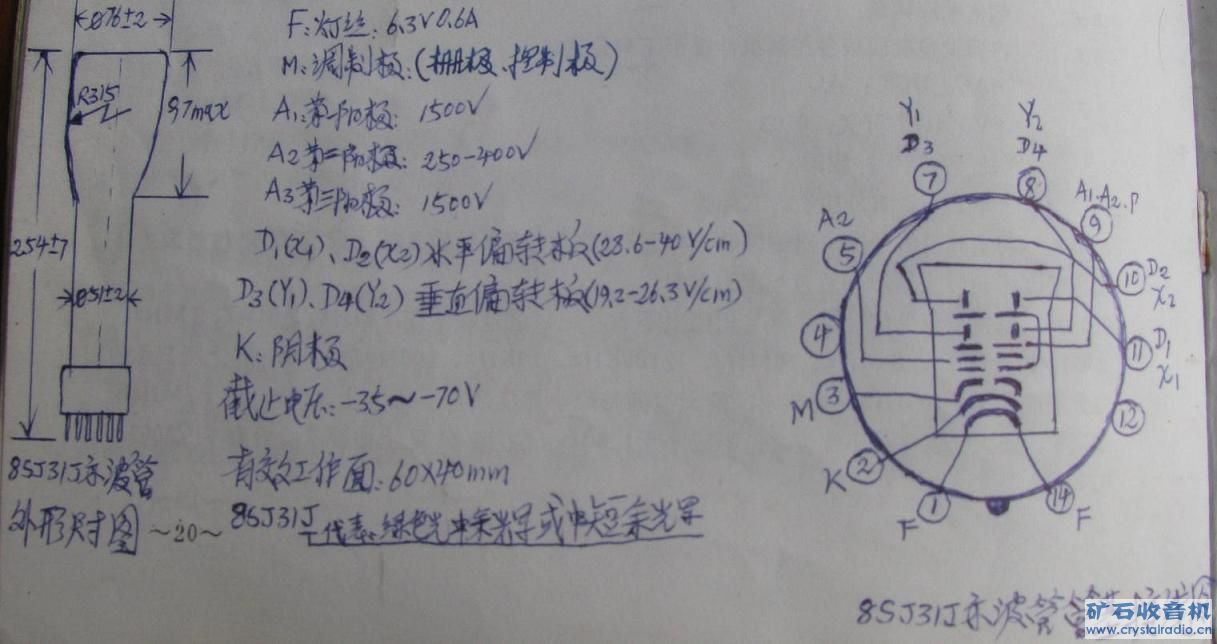 ø76±2
R315
97max
254±7
ø51±2
8SJ31J示波管
外形尺寸图
~20~
F:灯丝:6.3V0.6A
M:调制极:(栅极、控制极)
A1:第一阳极: 1500V
A2第二阳极: 250-400V
A3第三阳极: 1500V
D1(X1)、D2(X2)水平偏转板(28.6-40V/cm)
D3(Y1)、D4(Y2)垂直偏转板(19.2-26.3V/cm)
K:阴极
截止电压:-35~-70V
有效工作面:60X40mm
8SJ31J
J代表:绿色光中余光
Y1
D3
7
Y2
D4
8
A1.A2.P
9
A2
5
10
D2
X2
4
11
D1
X1
M
3
12
K
2
1
F
14
F
8SJ31J示波管管
矿石收音机
www.crystalradio.cn